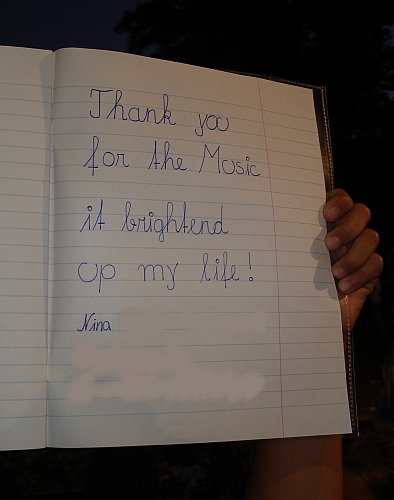 Thank you
for the Music
it brightend
up my life!
Nina